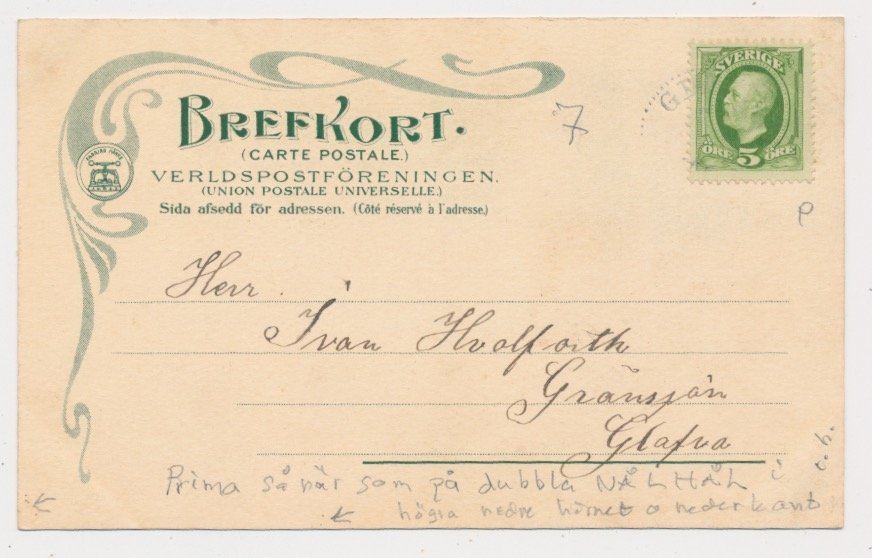 BREFKORT.
(CARTE POSTALE.)
VERLDSPOSTFÖRENINGEN.
(UNION POSTALE UNIVERSELLE.)
Sida afsedd för adressen. (Côté réservé à l'adresse.)
7
SVERIGE
ÖRE 5 ÖRE
P
Herr
Ivan Hvolforth
Gränsjön
Glafva
t.h.
Prima så när som på dubbla NÅLHÅL i
högra nedre hörnet o nederkant